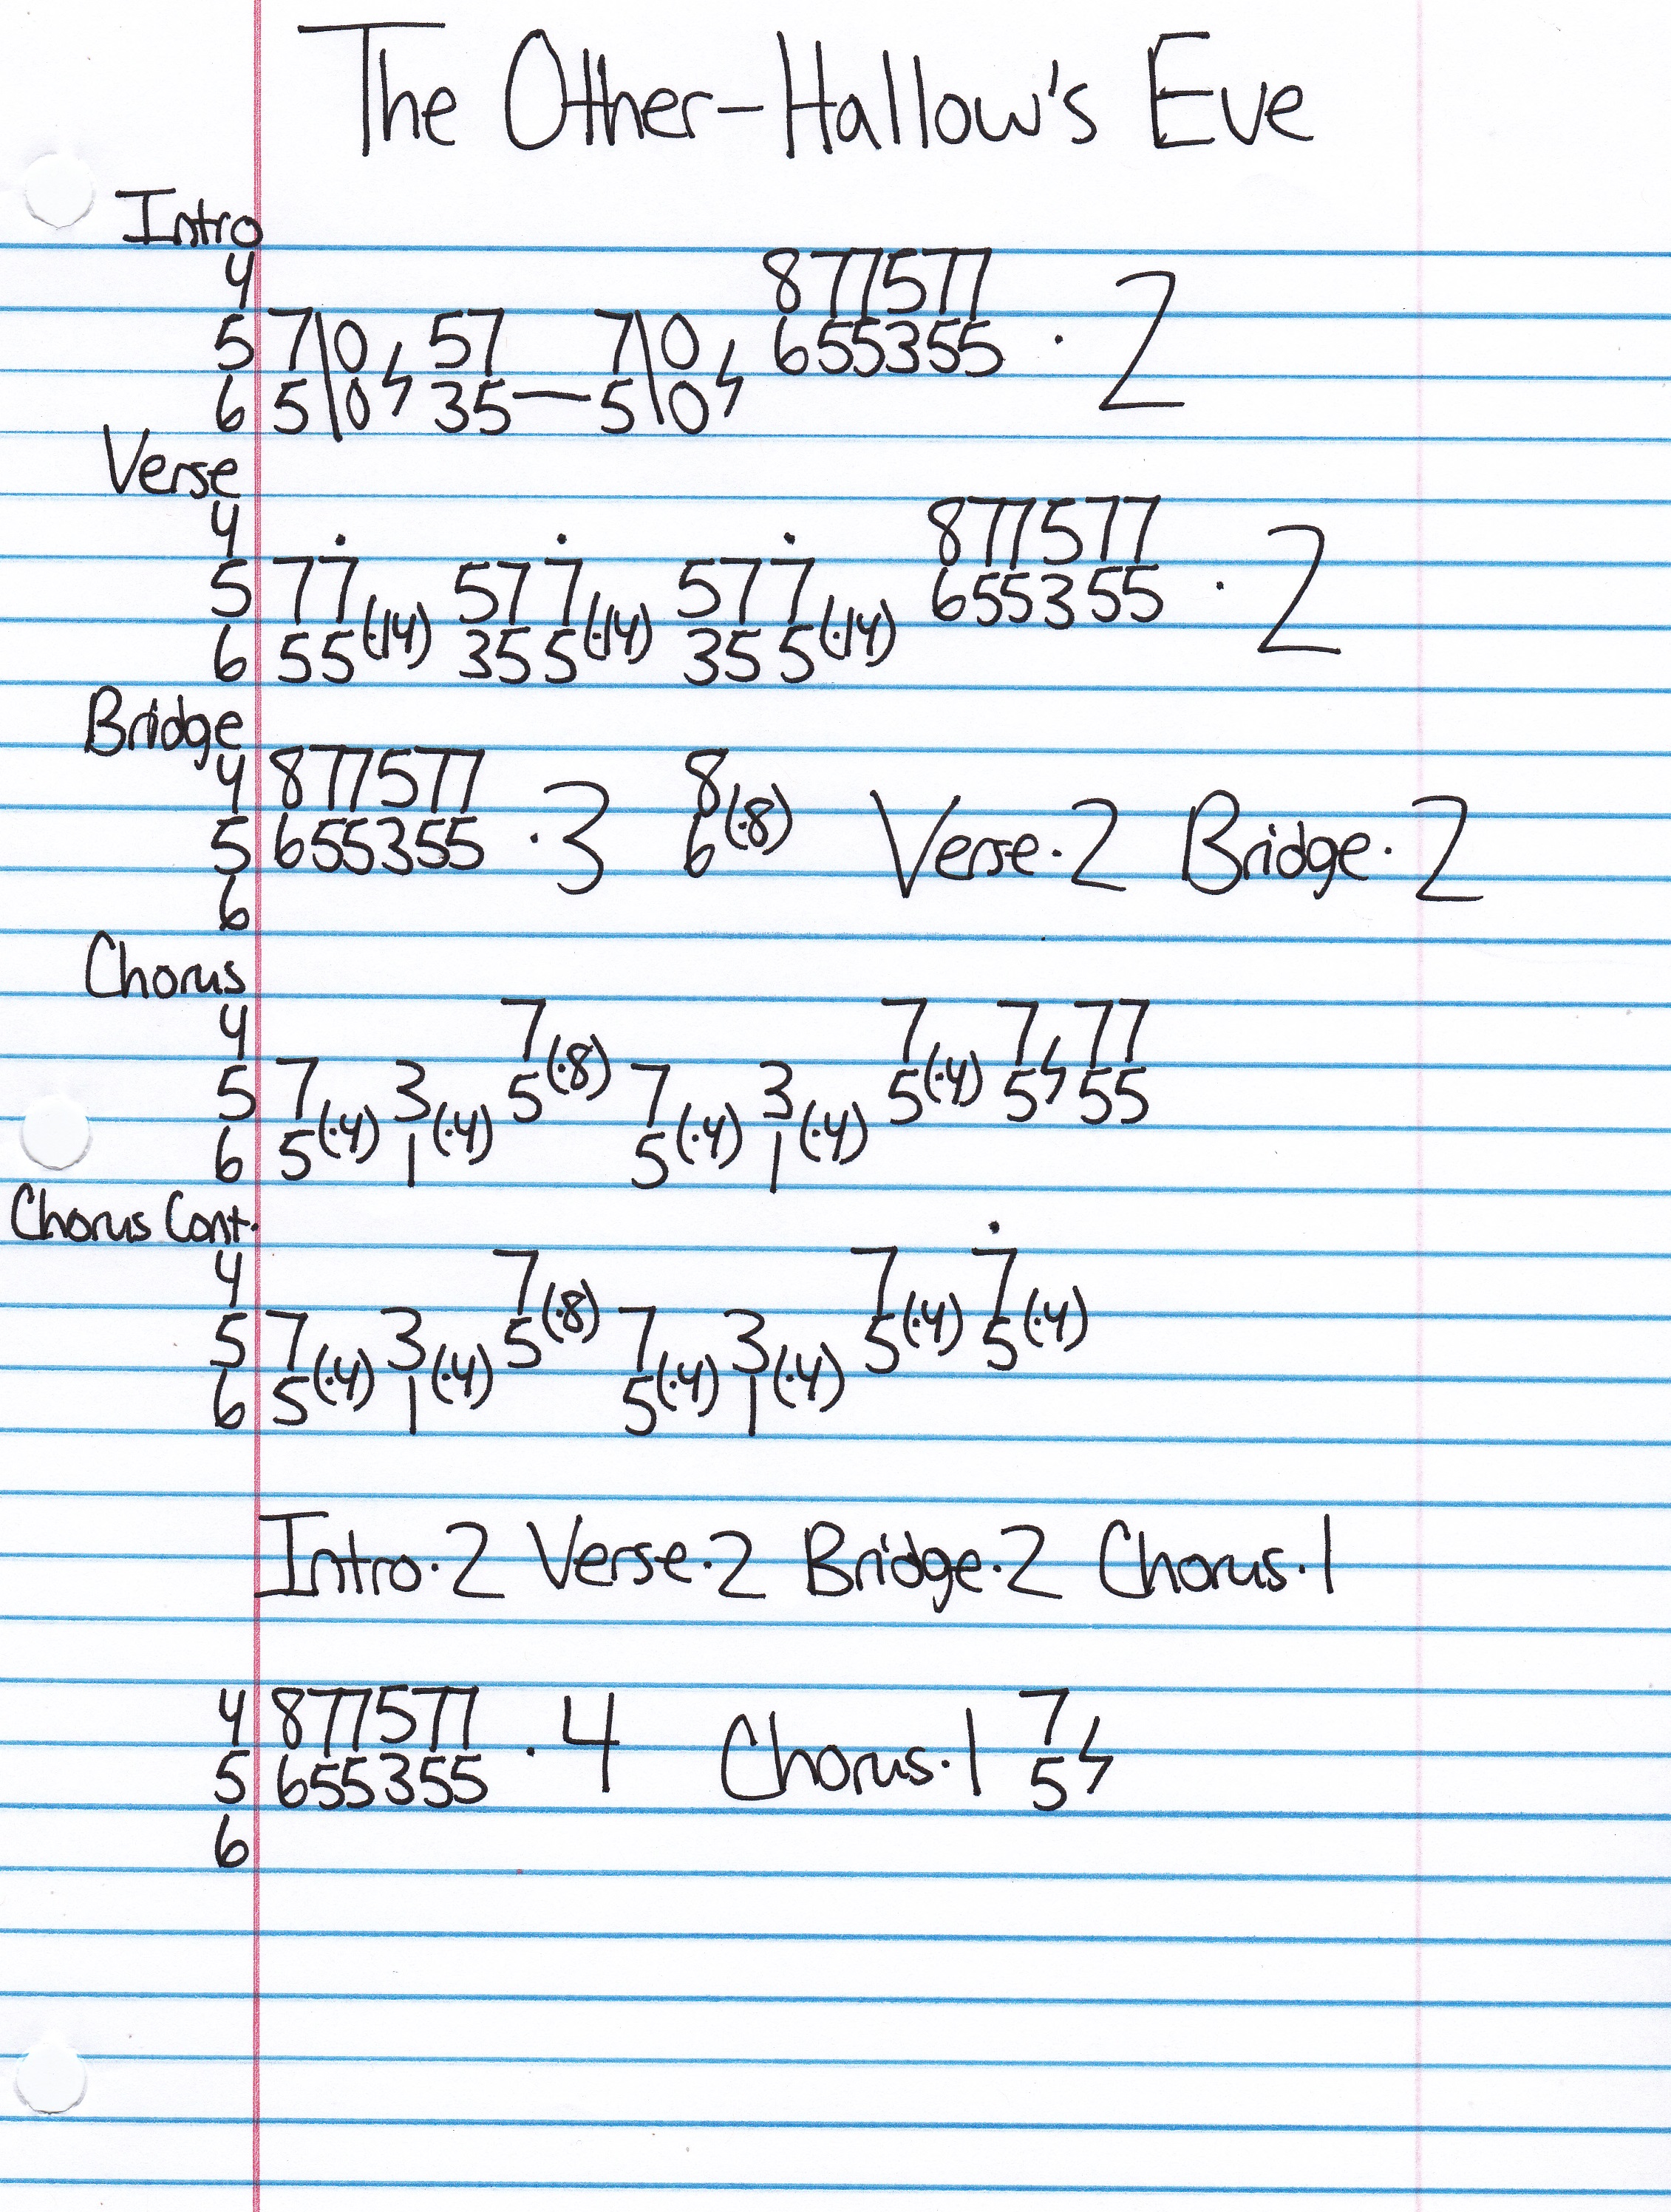 The Other-Hallow's Eve
Intro
4 877577
5 7\0 ϟ 57 7\0 ϟ 655355 · 2
6 5\0 35—5\0
Verse
4 877577
5 77̇ 577̇ 577̇ 655355 · 2
6 55(·14) 355(·14) 355(·14)
Bridge
4 877577 8
5 655355 ·3 6(·8) Verse·2 Bridge·2
6
Chorus
4 7 7 7 77
5 7 3 5(·8) 7 3 5(·4) 5ϟ 55
6 5(·4) 1(·4) 5(·4) 1(·4)
Chorus Cont.
4 7 7 7̇
5 7 3 5(·8) 7 3 5(·4) 5(·4)
6 5(·4) 1(·4) 5(·4) 1(·4)
Intro·2 Verse·2 Bridge·2 Chorus·1
4 877577 7
5 655355 ·4 Chorus·1 5ϟ
6